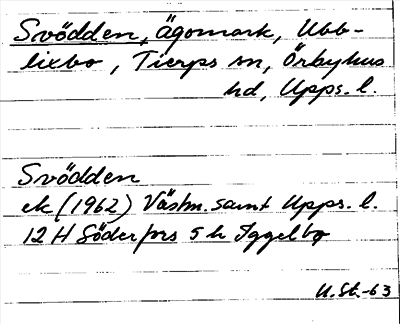 Svödden, ägomark, Ubb-
lixbo, Tierps sn, Örbyhus
hd, Upps. l.
Svödden
ek (1962) Västm. samt Upps. l.
12 H Söderfors 5 h Iggelbo
U.St.-63